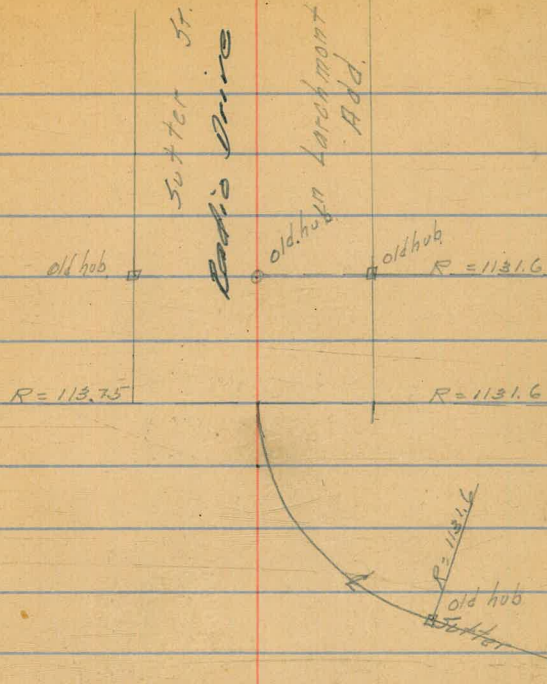 Sutter St.
Radio Drive
in Larchmont
Add.
old hub
old hub
old hub
R = 1131.6
R = 113.75
R = 1131.6
R = 1131.6
old hub
Sutter